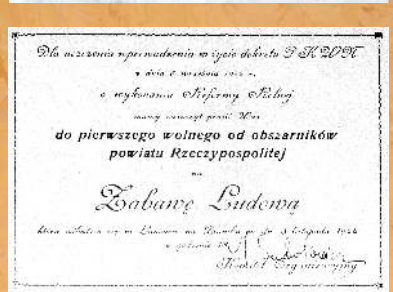 Dla uczczenia wprowadzenia w życie dekretu P K W N
z dnia 6 września 1944 r.
o wykonaniu Reformy Rolnej
mamy zaszczyt prosić Was
do pierwszego wolnego od obszarników
powiatu Rzeczypospolitej
na
Zabawę Ludową
która odbędzie się w na Zamku po dn. 5 listopada 1944
o godzinie
Komitet Organizacyjny